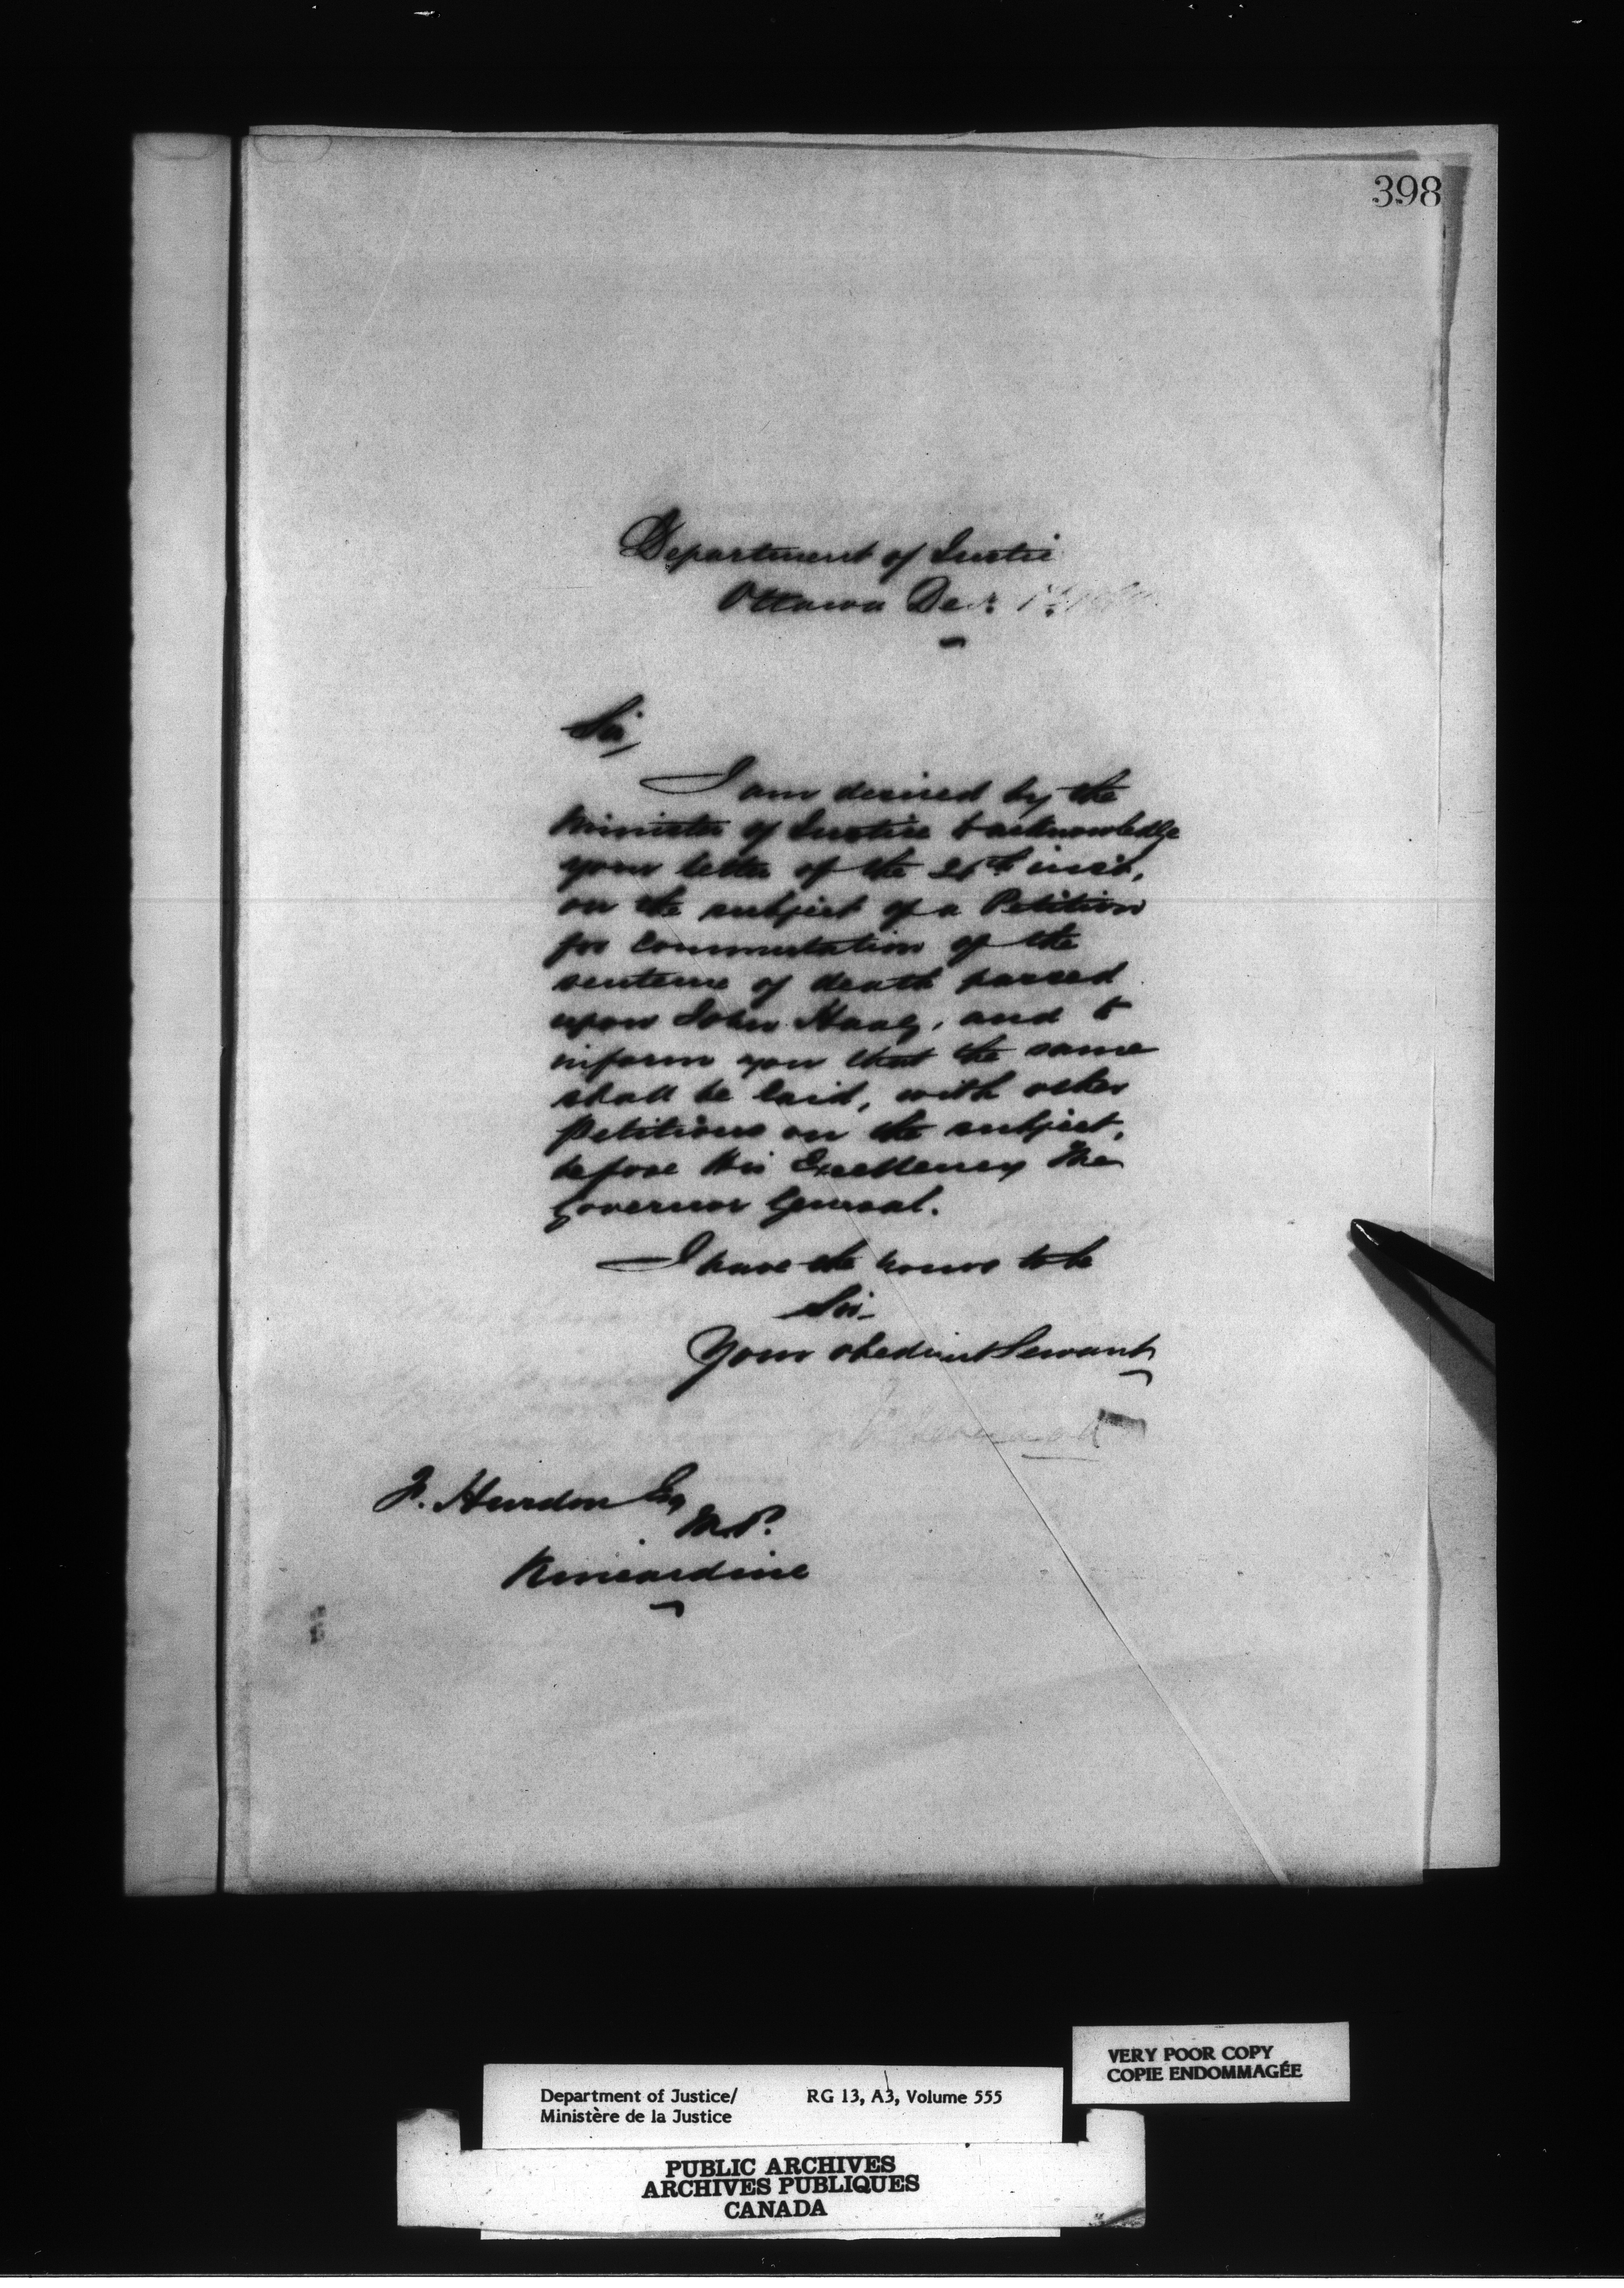 398
Department of Justice
Ottawa Dec.
Sir,
I am desired by the
Minister of Justice to acknowledge
your letter of the inst,
on the subject of a Petition
for Commutation of the
sentence of death passed
upon John Haag, and to
inform you that the same
shall be laid, with other
Petitions on the subject,
before His Excellency The
Governor General.
I have the honor to be
Sir
Your obedient Servant
F. Hurdon Esq
M.P.
Kincardine
VERY POOR COPY
COPIE ENDOMMAGÉE
Department of Justice/ RG 13, A3, Volume 555
Ministère de la Justice
PUBLIC ARCHIVES
ARCHIVES PUBLIQUES
CANADA